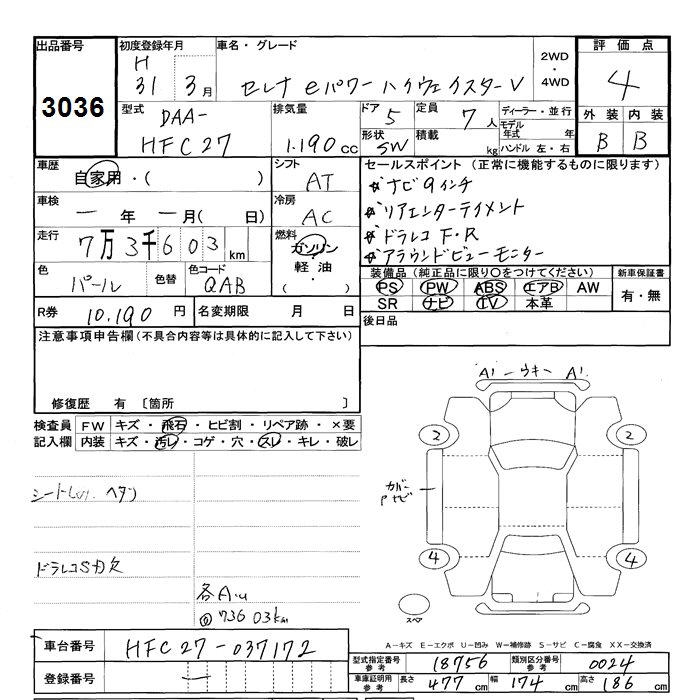 出品番号 3036
初度登録年月 H 31 3月
車名・グレード セレナ eパワー ハイウェイスターV
2WD・4WD
評価点 4
型式 DAA- HFC27
排気量 1.190cc
ドア 5
形状 SW
定員 7人
積載 kg
ディーラー・並行
モデル年式 年
ハンドル 左・右
外装 B 内装 B
車歴 自家用・( )
シフト AT
車検 ー年 ー月( 日)
冷房 AC
走行 7万3千603km
燃料 ガソリン・軽油・( )
色 パール 色替
色コード QAB
R券 10.190円
名変期限 月 日
セールスポイント (正常に機能するものに限ります)
ナビ9インチ
リアエンターテイメント
ドラレコ F・R
アラウンドビューモニター
装備品 (純正品に限り○をつけてください)
PS PW ABS エアB AW
SR ナビ TV 本革
新車保証書 有・無
後日品
注意事項申告欄 (不具合内容等は具体的に記入して下さい)
修復歴 有 〔箇所 〕
検査員記入欄
FW キズ・飛石・ヒビ割・リペア跡・×要
内装 キズ・汚レ・コゲ・穴・スレ・キレ・破レ
ヘタリ
ドラレコSD欠
736 03km
A1 ー ウキ ー A1
2 2
カバー
ナビ
4 4
スペア
A−キズ E−エクボ U−凹み W−補修跡 S−サビ C−腐食 XX−交換済
車台番号 HFC27-037172
登録番号 ー
型式指定番号 参考 18756
類別区分番号 参考 0024
車庫証明用 参考 長さ 477cm 幅 174cm 高さ 186cm